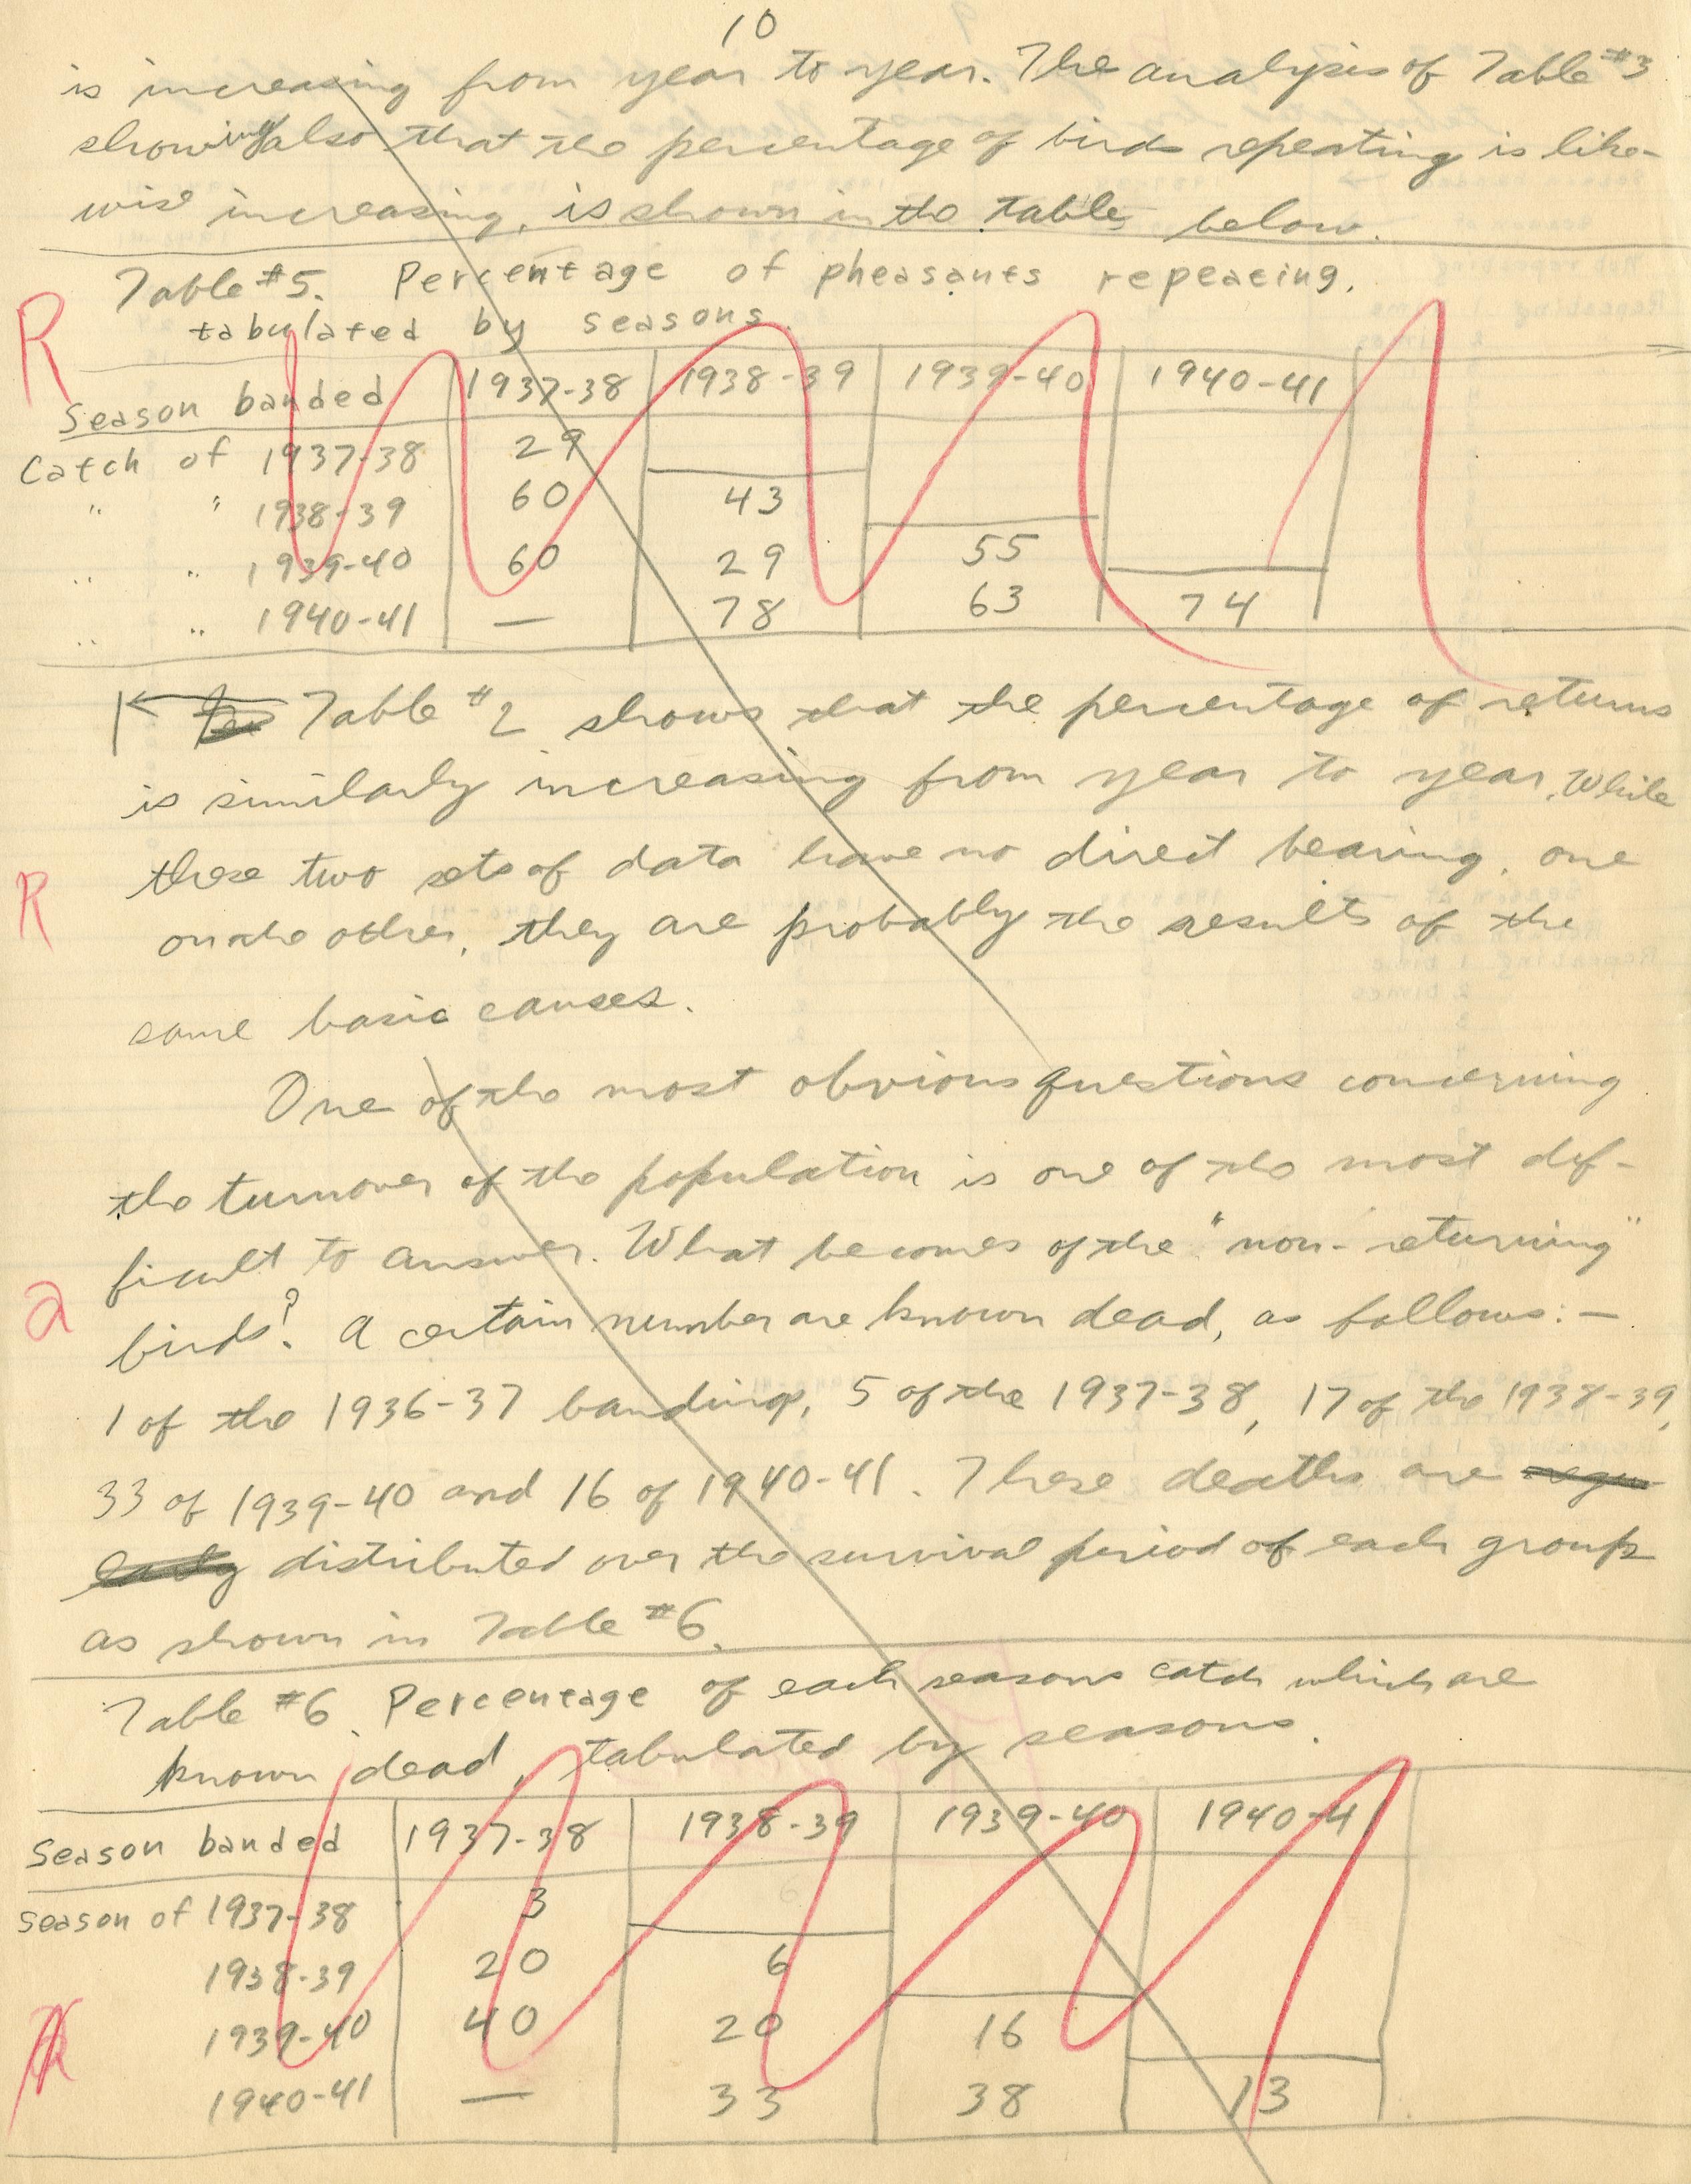 10
is increasing from year to year. The analysis of Table #3
showing also that the percentage of birds repeating is like-
wise increasing, is shown in the table below.
Table #5. Percentage of pheasants repeating,
tabulated by seasons.
R
Season banded 1937-38 1938-39 1939-40 1940-41
Catch of 1937-38 29
" " 1938-39 60 43
" " 1939-40 60 29 55
" " 1940-41 — 78 63 74
Table #2 shows that the percentage of returns
is similarly increasing from year to year. While
these two sets of data have no direct bearing, one
R
on the other, they are probably the results of the
same basic causes.
One of the most obvious questions concerning
the turnover of the population is one of the most dif-
ficult to answer. What becomes of the "non-returning"
a
birds? A certain number are known dead, as follows:—
1 of the 1936-37 banding, 5 of the 1937-38, 17 of the 1938-39,
33 of 1939-40 and 16 of 1940-41. These deaths are regu
larly distributed over the survival period of each group
as shown in Table #6.
Table #6. Percentage of each seasons catch which are
known dead, tabulated by seasons.
Season banded 1937-38 1938-39 1939-40 1940-41
Season of 1937-38 3
1938-39 20 6
1939-40 40 20 16
R
1940-41 — 33 38 13